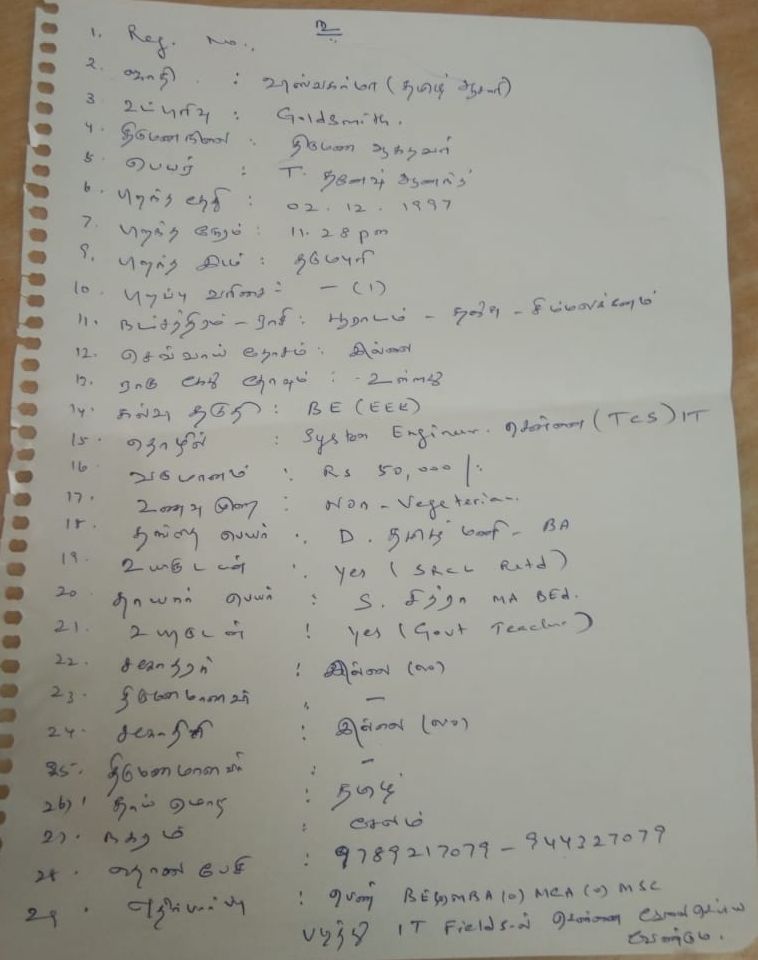 உ
1. Reg. No.,
2. ஜாதி : விஸ்வகர்மா (தமிழ் ஆசாரி)
3 உட்பிரிவு : Goldsmith.
4. திருமணநிலை : திருமணம் ஆகாதவர்
5. பெயர் : T.
6. பிறந்த தேதி : 02.12.1997
7. பிறந்த நேரம் : 11.28 pm
9. பிறந்த இடம் : தருமபுரி
10. பிறப்பு வரிசை : - (1)
11. நட்சத்திரம் - ராசி : பூராடம் - தனுசு - சிம்மலக்னம்
12. செவ்வாய் தோசம் : இல்லை
13. ராகு கேது தோஷம் : உள்ளது
14. கல்வி தகுதி : BE (EEE)
15. தொழில் : System Engineer. சென்னை (TCS) IT
16 வருமானம் : Rs 50,000/-
17. உணவு முறை : Non-Vegeterian.
18. தந்தை பெயர் : D. தமிழ் மணி - BA
19. உயிருடன் : Yes ( Retd)
20. தாயார் பெயர் : S. சித்ரா MA BEd.
21. உயிருடன் : Yes (Govt Teacher)
22. சகோதரர் : இல்லை
23. திருமணமானவர் : -
24. சகோதரி : இல்லை
25. திருமணமானவர் : -
26. தாய் மொழி : தமிழ்
27. நகரம் : சேலம்
28 தொலை பேசி : 9789217079 - 944327079
29. எதிர்பார்ப்பு : பெண் BE MBA (o) MCA (o) MSC
படித்து IT Fields-ல் சென்னை வேலை செய்ய
வேண்டும்.